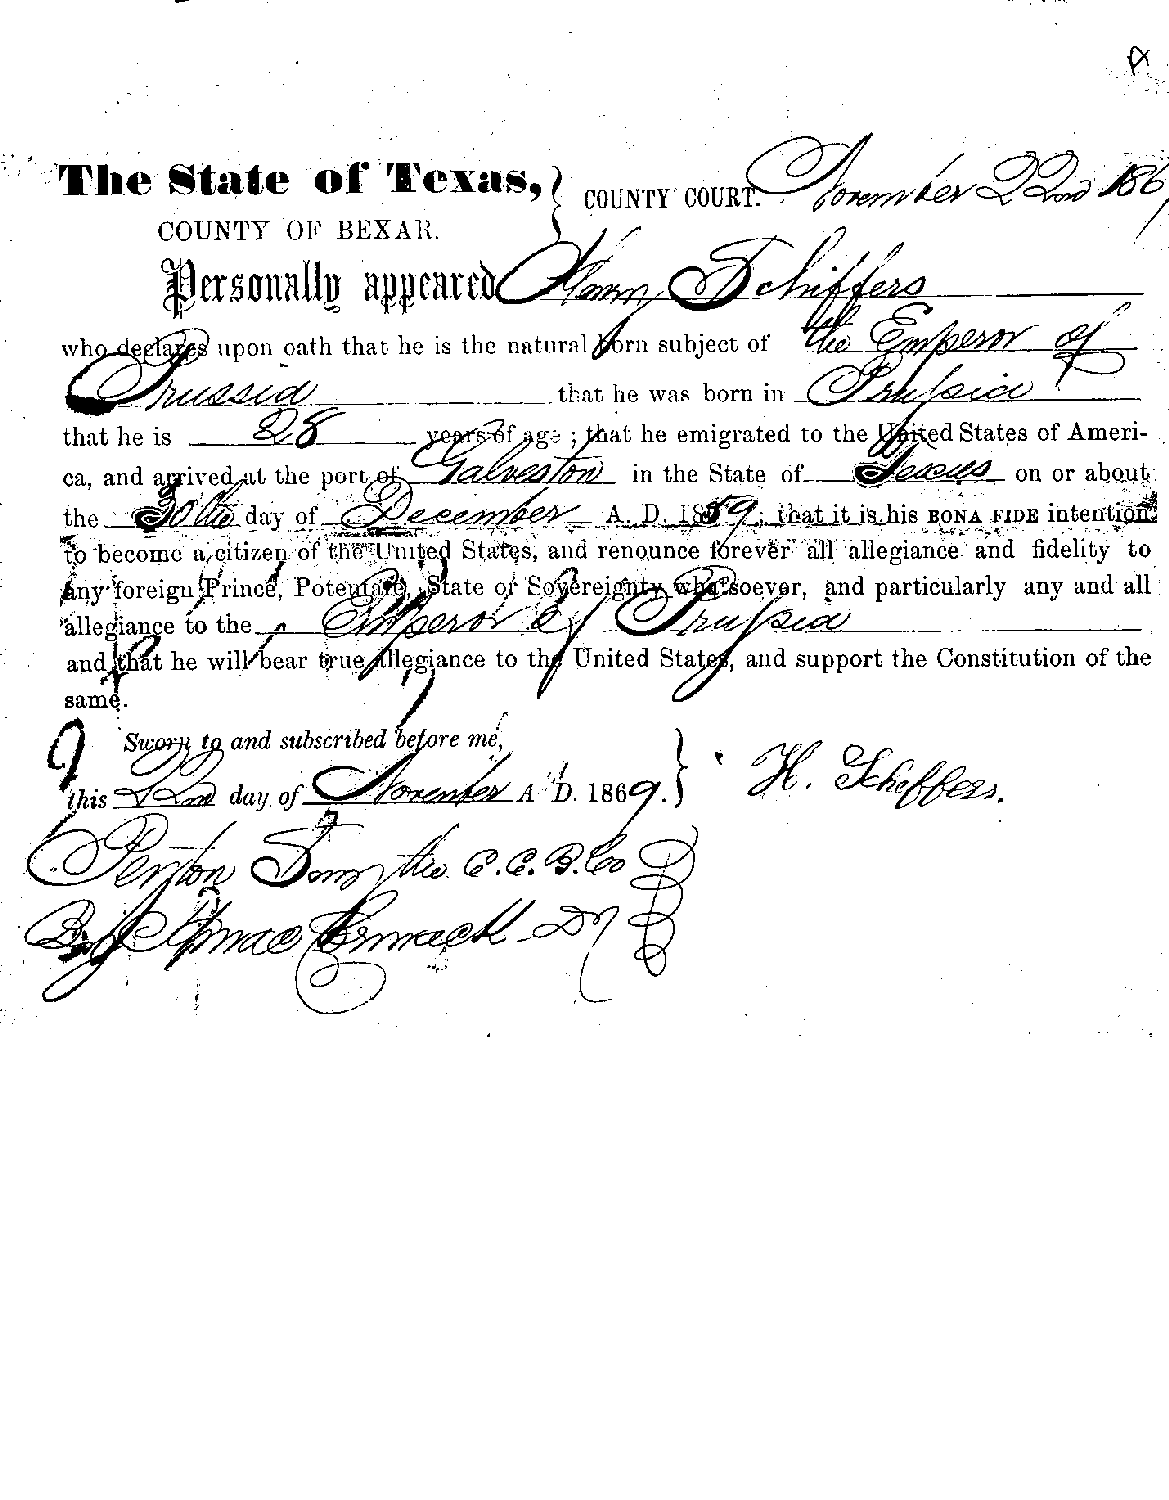 The State of Texas, } COUNTY COURT. November 22nd 186
COUNTY OF BEXAR.
Personally appeared Henry Schiffers
who declares upon oath that he is the natural born subject of the Emperor of
Prussia that he was born in Prussia
that he is 28 years of age ; that he emigrated to the United States of Ameri-
ca, and arrived at the port of Galveston in the State of Texas on or about
the 30th day of December A. D. 1859; that it is his BONA FIDE intention
to become a citizen of the United States, and renounce forever all allegiance and fidelity to
any foreign Prince, Potentate, State or Sovereignty whatsoever, and particularly any and all
allegiance to the Emperor of Prussia
and that he will bear true allegiance to the United States, and support the Constitution of the
same.
Sworn to and subscribed before me,
this 22nd day of November A. D. 1869. } H. Scheffers.
C. C. B. Co
By